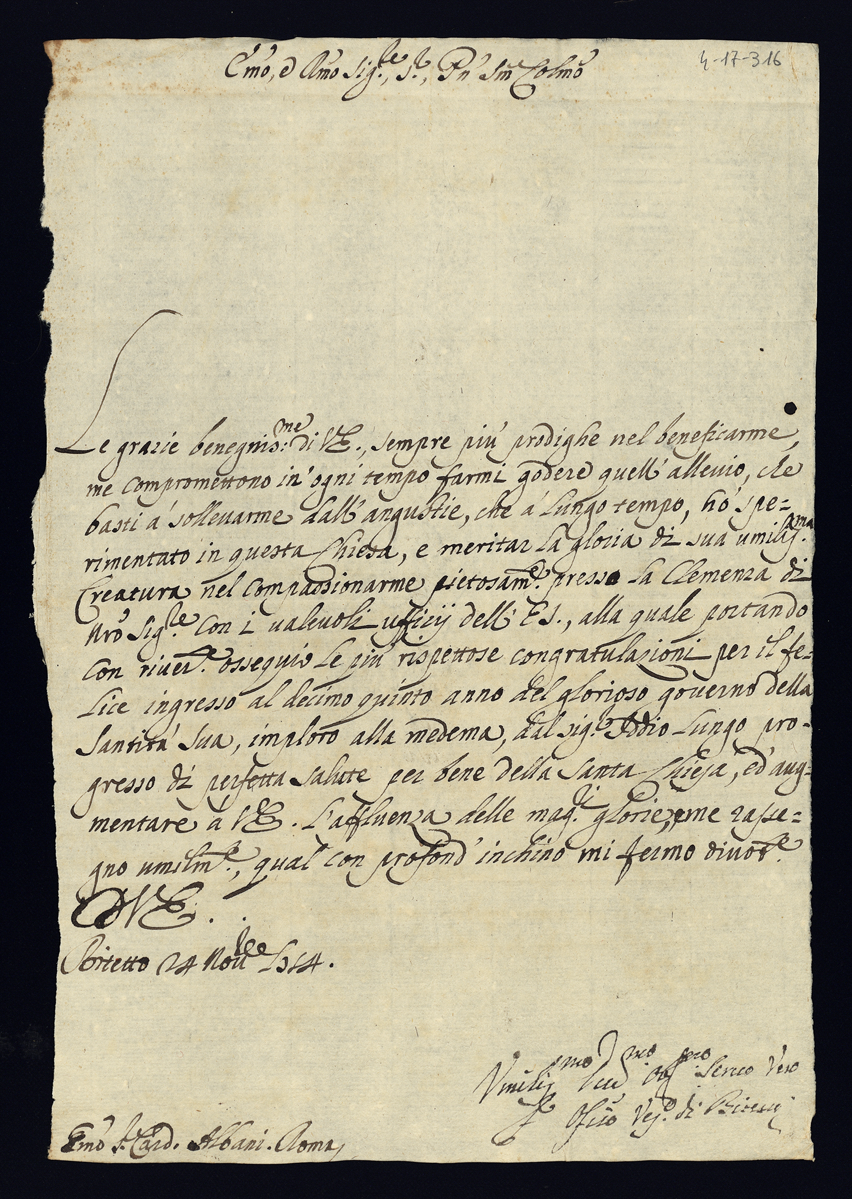 4-17-316
Emo, e Rmo Sig.re, S.r, Pn Sin Colmo
Le grazie benegnis:me di VE., sempre più prodighe nel beneficarme,
me compromettono in ogni tempo farmi godere quell' allevio, che
basti a' sollevarme dall' angustie, che a' lungo tempo, hò spe=
rimentato in questa Chiesa, e meritar la gloria di sua umilis.ma
Creatura nel compassionarme pietosam.e presso la Clemenza di
Nro Sig.re Con i valevoli ufficij dell' ES., alla quale portando
con river.e ossequio le più rispettose congratulazioni per il fe=
lice ingresso al decimo quinto anno del glorioso governo della
Santità Sua, imploro alla medema, dal Sig.e Iddio lungo pro=
gresso di perfetta salute per bene della Santa Chiesa, ed aug=
mentare à VE. l'affluenza delle mag.ri glorie, e me rasse=
gno umilm.e, qual con profond' inchino mi fermo divot.e
D VE.
Bitetto 24 Nov.bre 1714.
Umilis.mo Dev.mo Obl.mo Servo Vero
Vej.o di Bitetto
Emo S.r Card. Albani. Roma